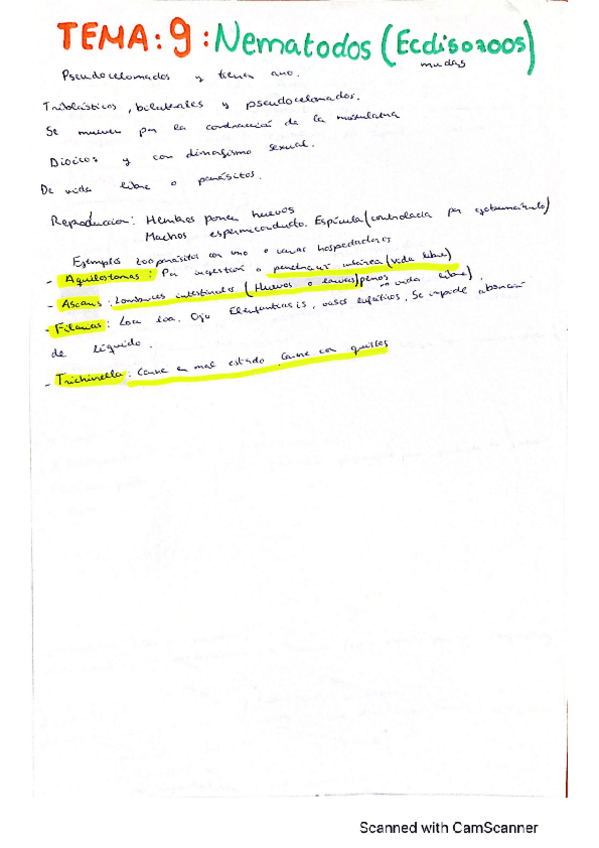 TEMA: 9: Nematodos (Ecdisozoos)
mudas
Pseudocelomados y tienen ano.
Triblásticos, bilaterales y pseudocelomados.
Se mueven por la contracción de la musculatura
Dioicos y con dimorfismo sexual.
De vida libre o parásitos.
Reproducción: Hembras ponen huevos
Machos espermiconducto. Espícula (controlada por
Ejemplos zooparásitos con uno o varios hospedadores
- Aquilostomas: Por ingestión o penetración cutánea (vida libre)
- Ascaris: Lombrices intestinales (Huevos o larvas) vida libre).
- Filarias: Loa loa. Ojo Elefantiasis, vasos linfáticos, Se impide absorción
de líquido.
- Trichinella: Carne en mal estado Carne con quistes
Scanned with CamScanner